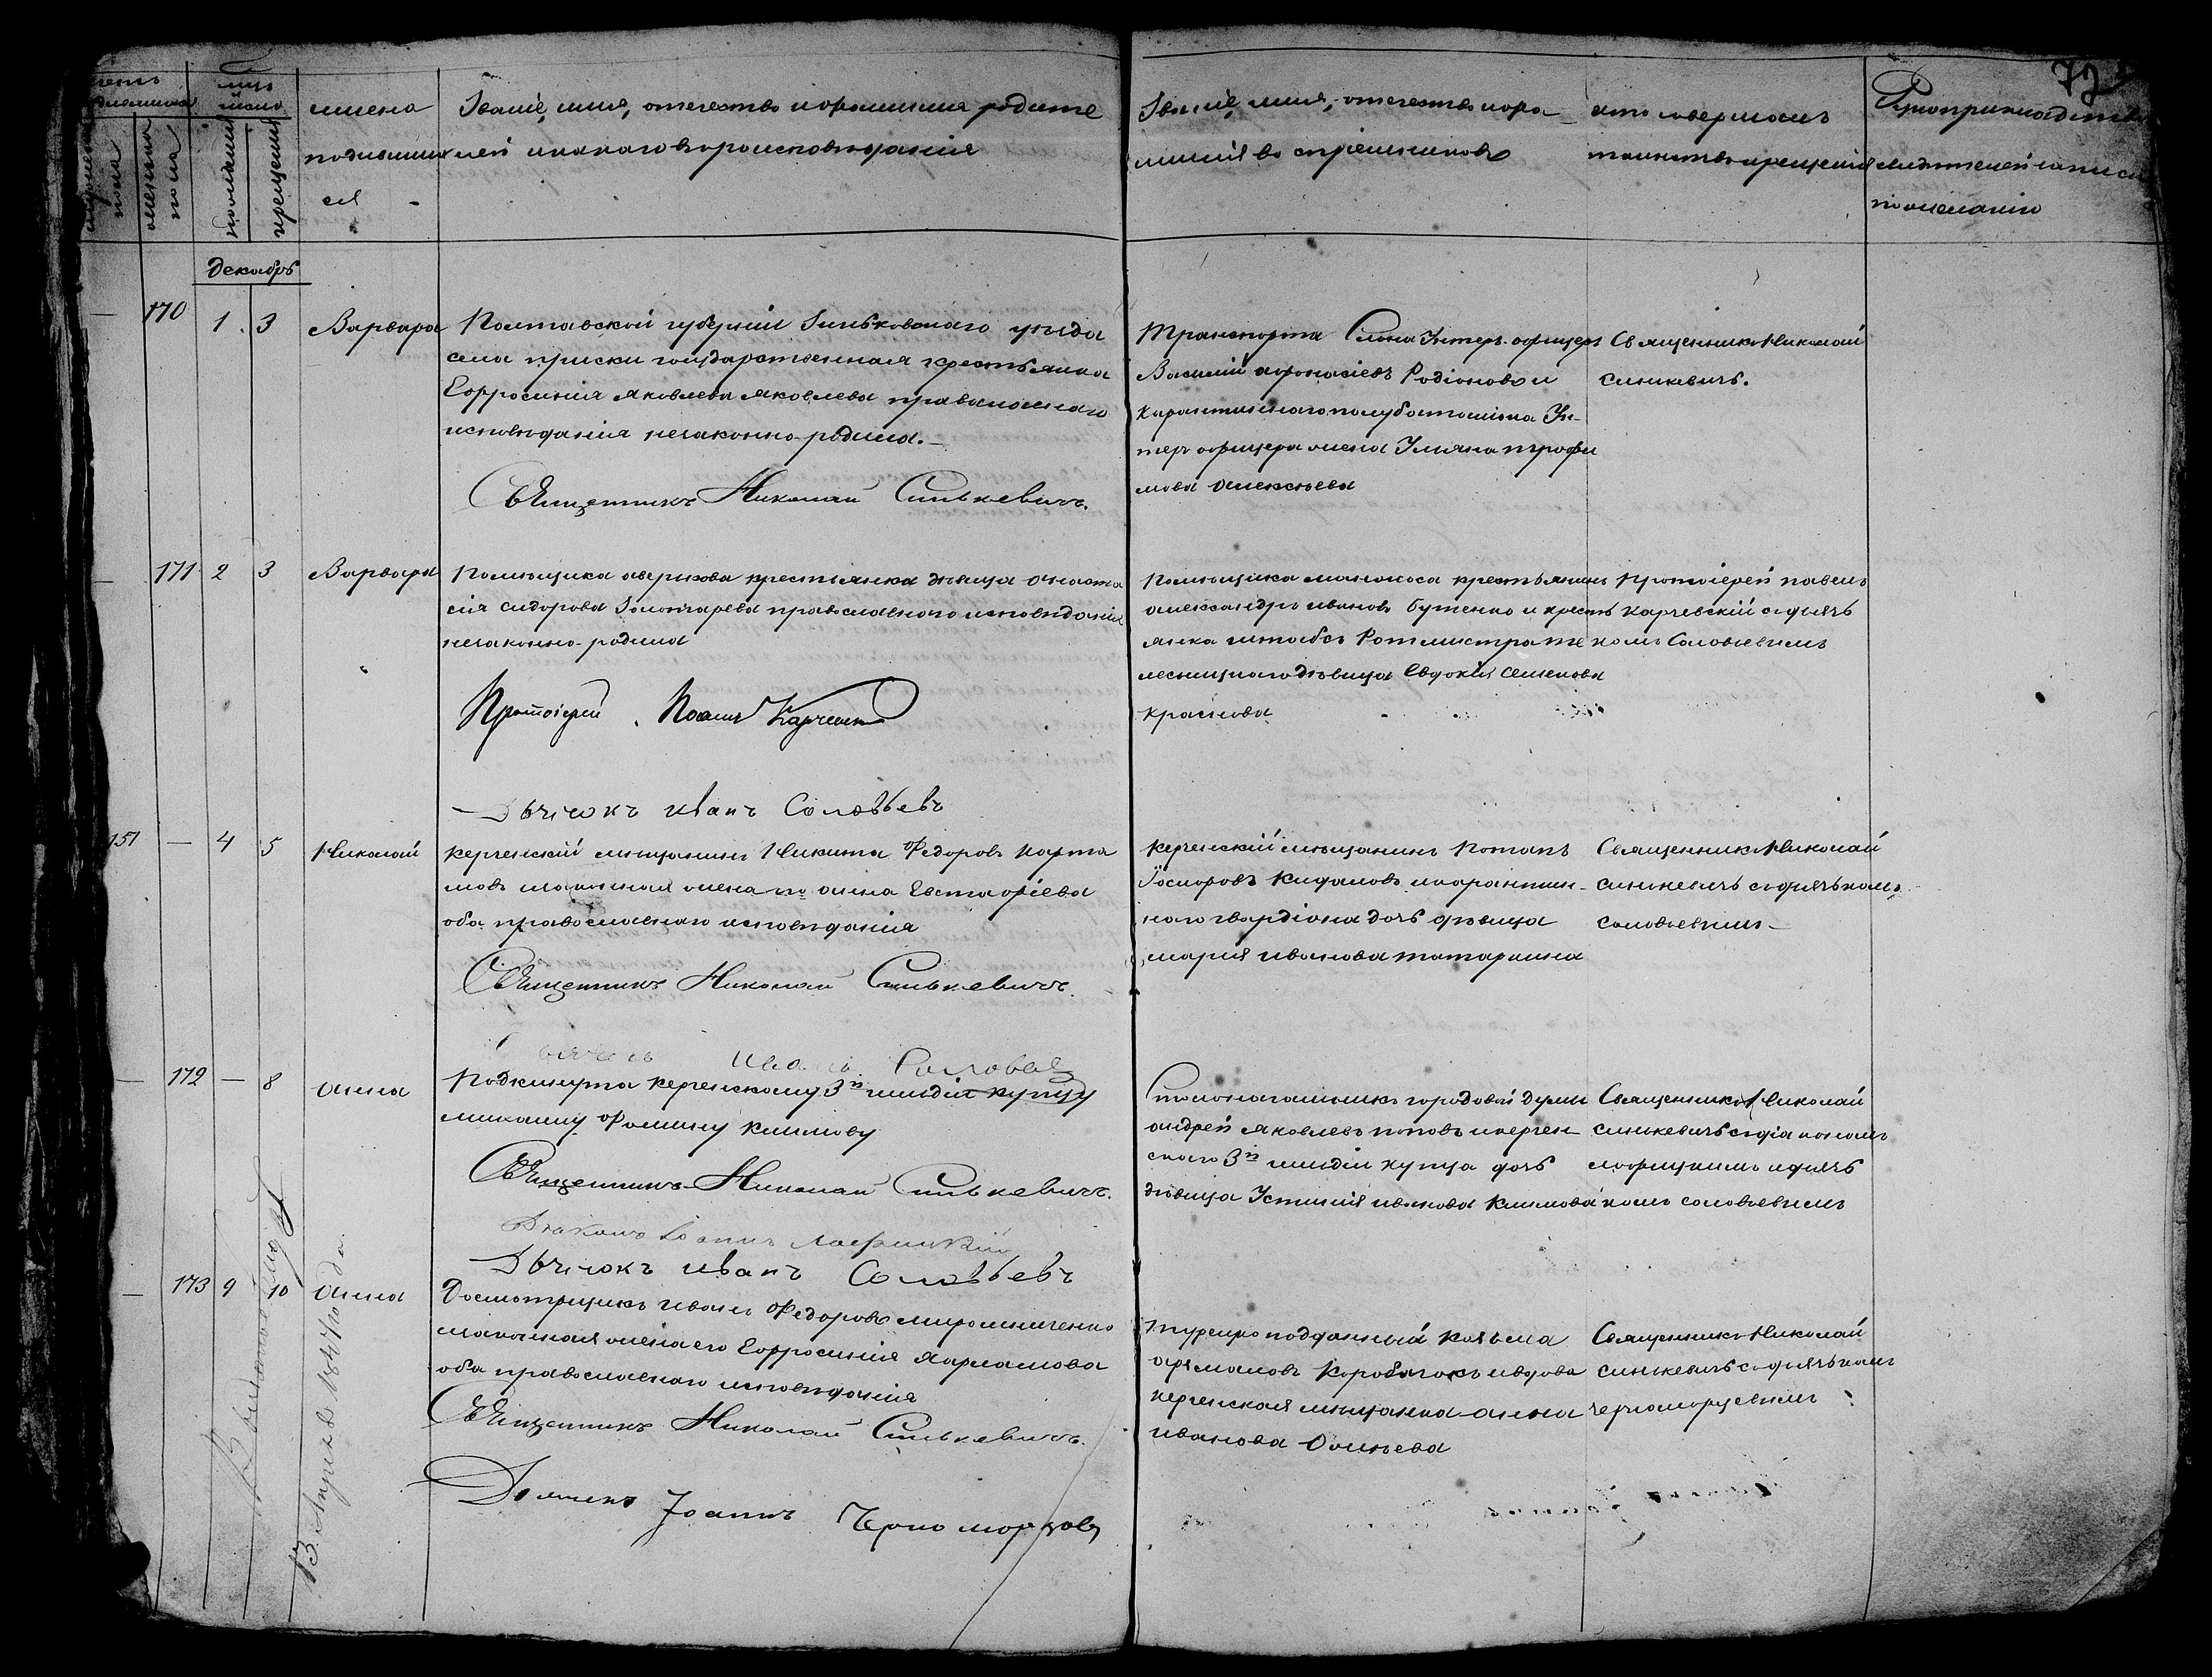 72
счетъ родившихся
мужеска пола
женска пола
мѣсяцъ и число
рожденія
крещенія
имена
родивших
ся
Званіе, имя, отечество и фамилия родите
лей и какаго вѣроисповѣданія
Званіе, имя, отечество и фа
милія воспріемниковъ
кто совершалъ
таинство крещенія
Рукоприкладство
свидѣтелей записи
по желанію
декабрь
170 1. 3 Варвара
Полтавской губерніи Зиньковскаго уѣзда
села приски государственная крестьянка
Ефросинія яковлева яковлева православнаго
исповѣданія незаконно-родила.
Священникъ Николай Синькевичъ.
Транспорта Слона Унтеръ-офицеръ
Василій афонасіевъ Родіоновъ и
карантиннаго полубаталіона Ун-
теръ офицера жена Уліяна трофи
мова алексѣева
Священникъ Николай
синькевичъ.
171 2 3 Варвара
Помѣщика аверкова крестьянка дѣвица анаста
сія сидорова Гончарева православнаго исповѣданія
незаконно-родила
Протоіерей Павелъ Карчевскій
Дьячокъ иванъ Соловьевъ
Помѣщика маноноса крестьянинъ
александръ ивановъ бутенко и кресть
янка штабсъ Ротмистра те
лесницкаго дѣвица Евдокія семенова
краснова
Протоіерей павелъ
Карчевскій съ дьяч
комъ Соловьевымъ
151 — 4 5 Николай
керченскій мѣщанинъ Никита Федоровъ карта
мовъ законная жена его анна Евстафіева
оба православнаго исповѣданія
Священникъ Николай Синькевичъ.
Дьячекъ Иванъ Соловьевъ
керченскій мѣщанинъ Потапъ
кифаловъ и карантин-
наго гвардіона дочь дѣвица
марія иванова татаркина
Священникъ Николай
синькевичъ съ дьячкомъ
соловьевымъ
— 172 — 8 анна
Подкинута керченскому 3й гильдіи купцу
михаилу Фомину климову
Священникъ Николай Синькевичъ.
Діаконъ Іоаннъ Лофицкій
Дьячокъ иванъ Соловьевъ
Столоначальникъ городовой думы
андрей яковлевъ поповъ и керчен-
скаго 3й гильдіи купца дочь
дѣвица Устинія иванова климова
Священникъ Николай
синькевичъ съ діакономъ
лофицкимъ и дьяч
комъ соловьевымъ
— 173 9 10 анна
Досмотрщикъ иванъ Федоровъ мирошниченко
законная жена его Ефросинія харламова
оба православнаго исповѣданія
Священникъ Николай Синькевичъ.
Дьячекъ Іоаннъ Черноморцовъ
турецко подданный козьма
коробачокъ и вдова
керченская мѣщанка анна
иванова
Священникъ Николай
синькевичъ съ дьячкомъ
черноморцевымъ
13. Апреля 1847 года.